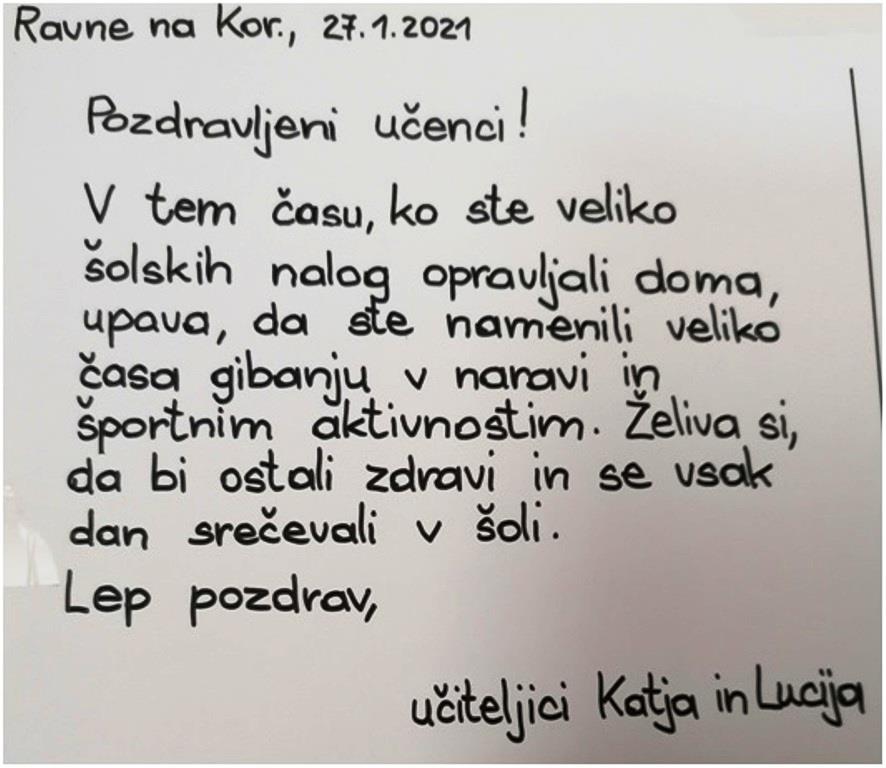 Ravne na Kor., 27.1.2021
Pozdravljeni učenci!
V tem času, ko ste veliko
šolskih nalog opravljali doma,
upava, da ste namenili veliko
časa gibanju v naravi in
športnim aktivnostim. Želiva si,
da bi ostali zdravi in se vsak
dan srečevali v šoli.
Lep pozdrav,
učiteljici Katja in Lucija